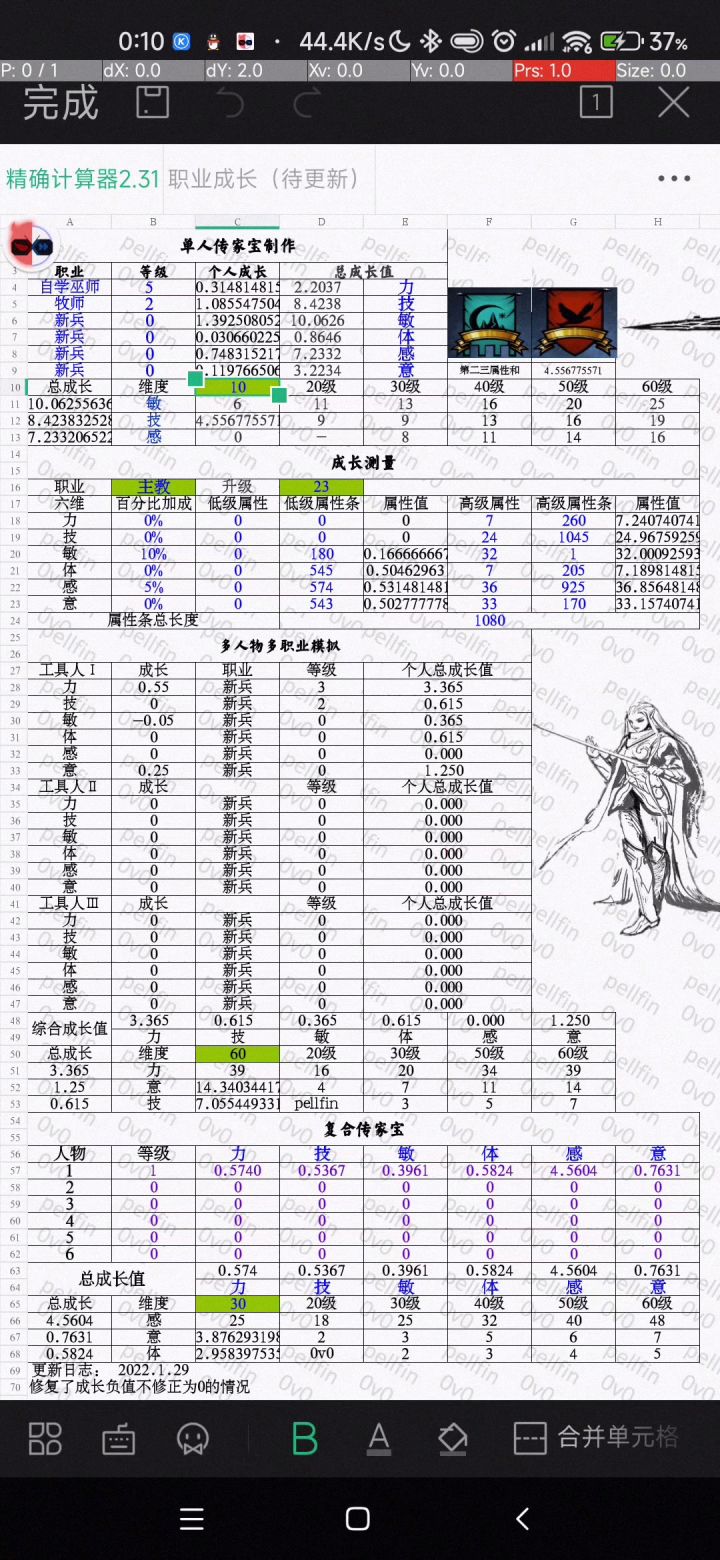 0:10 44.4K/s 37%
P: 0 / 1 dX: 0.0 dY: 2.0 Xv: 0.0 Yv: 0.0 Prs: 1.0 Size: 0.0
完成 1
精确计算器2.31 职业成长（待更新）
A B C D E F G H
单人传家宝制作
3 职业 等级 个人成长 总成长值
4 自学巫师 5 0.314814815 2.2037 力
5 牧师 2 1.085547504 8.4238 技
6 新兵 0 1.392508052 10.0626 敏
7 新兵 0 0.030660225 0.8646 体
8 新兵 0 0.748315217 7.2332 感
9 新兵 0 0.119766506 3.2234 意 第二三属性和 4.556775571
10 总成长 维度 10 20级 30级 40级 50级 60级
11 10.06255636 敏 6 11 13 16 20 25
12 8.423832528 技 4.556775571 9 9 13 16 19
13 7.233206522 感 0 － 8 11 14 16
14
15 成长测量
16 职业 主教 升级 23
17 六维 百分比加成 低级属性 低级属性条 属性值 高级属性 高级属性条 属性值
18 力 0% 0 0 0 7 260 7.240740741
19 技 0% 0 0 0 24 1045 24.96759259
20 敏 10% 0 180 0.166666667 32 1 32.00092593
21 体 0% 0 545 0.50462963 7 205 7.189814815
22 感 5% 0 574 0.531481481 36 925 36.85648148
23 意 0% 0 543 0.502777778 33 170 33.15740741
24 属性条总长度 1080
25
26 多人物多职业模拟
27 工具人Ⅰ 成长 职业 等级 个人总成长值
28 力 0.55 新兵 3 3.365
29 技 0 新兵 2 0.615
30 敏 −0.05 新兵 0 0.365
31 体 0 新兵 0 0.615
32 感 0 新兵 0 0.000
33 意 0.25 新兵 0 1.250
34 工具人Ⅱ 成长 等级 个人总成长值
35 力 0 新兵 0 0.000
36 技 0 新兵 0 0.000
37 敏 0 新兵 0 0.000
38 体 0 新兵 0 0.000
39 感 0 新兵 0 0.000
40 意 0 新兵 0 0.000
41 工具人Ⅲ 成长 等级 个人总成长值
42 力 0 新兵 0 0.000
43 技 0 新兵 0 0.000
44 敏 0 新兵 0 0.000
45 体 0 新兵 0 0.000
46 感 0 新兵 0 0.000
47 意 0 新兵 0 0.000
48 综合成长值 3.365 0.615 0.365 0.615 0.000 1.250
49 力 技 敏 体 感 意
50 总成长 维度 60 20级 30级 50级 60级
51 3.365 力 39 16 20 34 39
52 1.25 意 14.34034417 4 7 11 14
53 0.615 技 7.055449331 pellfin 3 5 7
54
55 复合传家宝
56 人物 等级 力 技 敏 体 感 意
57 1 1 0.5740 0.5367 0.3961 0.5824 4.5604 0.7631
58 2 0 0 0 0 0 0 0
59 3 0 0 0 0 0 0 0
60 4 0 0 0 0 0 0 0
61 5 0 0 0 0 0 0 0
62 6 0 0 0 0 0 0 0
63 总成长值 0.574 0.5367 0.3961 0.5824 4.5604 0.7631
64 力 技 敏 体 感 意
65 总成长 维度 30 20级 30级 40级 50级 60级
66 4.5604 感 25 18 25 32 40 48
67 0.7631 意 3.876293198 2 3 5 6 7
68 0.5824 体 2.958397535 0v0 2 3 4 5
69 更新日志： 2022.1.29
70 修复了成长负值不修正为0的情况
B A 合并单元格